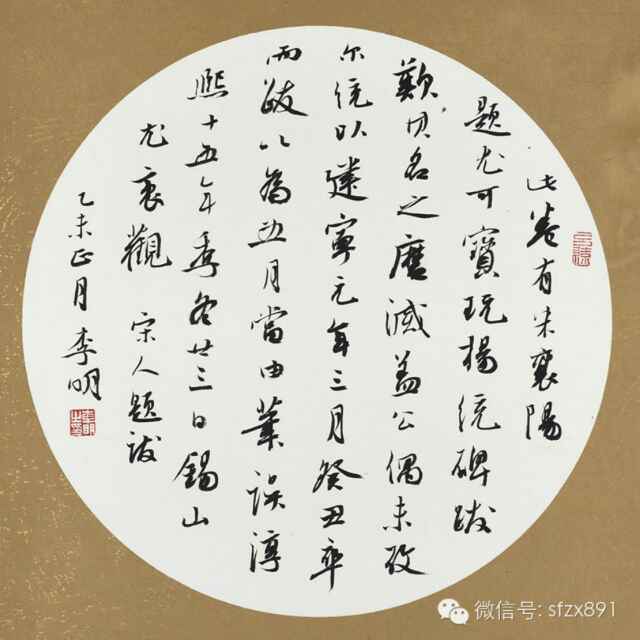 此卷有米襄陽
題尤可寶玩楊統碑跋
歎其名之磨滅蓋公偶未攷
尔統以建寧元年三月癸丑卒
而跋以為五月當由筆誤淳
熙十五年季冬廿三日錫山
尤袤觀 宋人題跋
乙未正月 李明
微信号: sfzx891